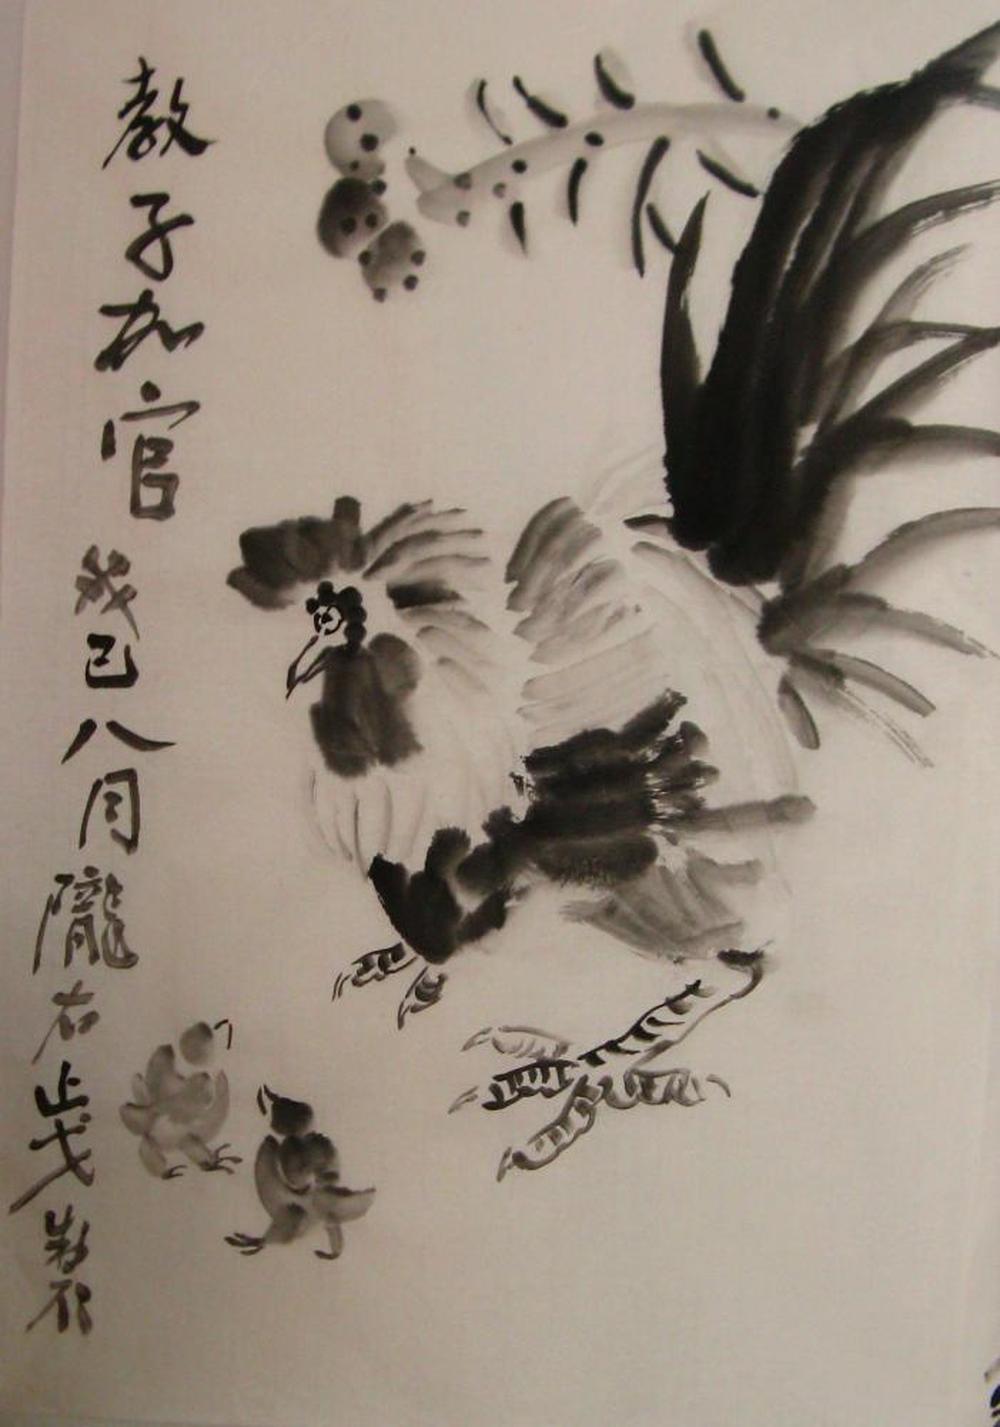 教子加官戊己八月隴右止戈製